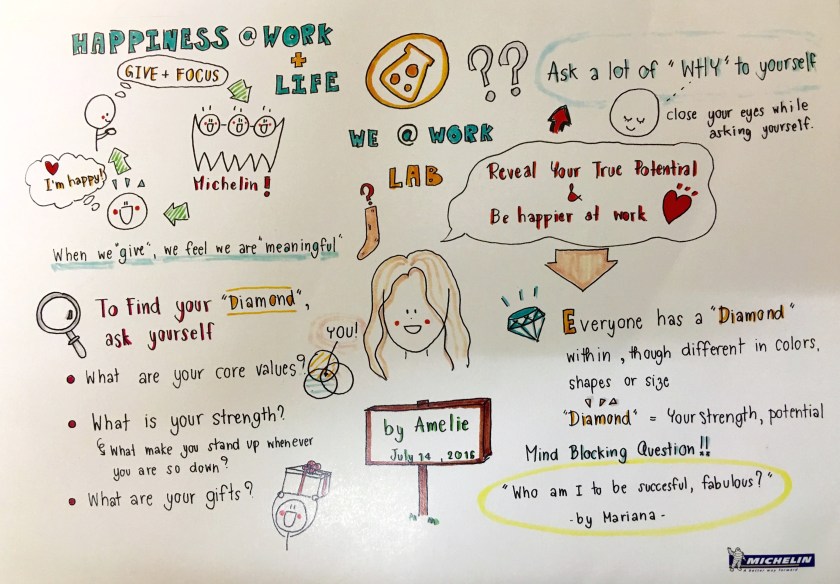 HAPPINESS @ WORK
+
LIFE
GIVE + FOCUS
Michelin!
I'm happy!
When we "give", we feel we are "meaningful"
WE @ WORK
LAB
?
??
Ask a lot of "WHY" to yourself
close your eyes while
asking yourself.
Reveal Your True Potential
&
Be happier at work
To Find your "Diamond",
ask yourself
YOU!
• What are your core values?
• What is your strength?
What make you stand up whenever
you are so down?
• What are your gifts?
by Amelie
July 14, 2016
Everyone has a "Diamond"
within, though different in colors,
shapes or size
"Diamond" = Your strength, potential
Mind Blocking Question!!
"Who am I to be succesful, fabulous?"
- by Mariana -
MICHELIN
A better way forward